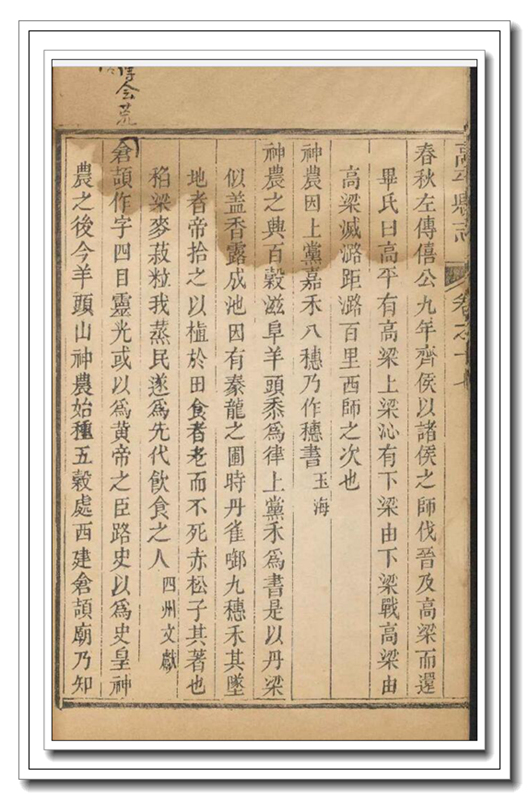 高平縣志
卷之十
春秋左傳僖公九年齊侯以諸侯之師伐晉及高梁而還
畢氏曰高平有高梁上梁沁有下梁由下梁戰高梁由
高梁滅潞距潞百里西師之次也
神農因上黨嘉禾八穗乃作穗書玉海
神農之興百穀滋阜羊頭黍爲律上黨禾爲書是以丹梁
似盖香露成池因有豢龍之圃時丹雀啣九穗禾其墜
地者帝拾之以植於田食者老而不死赤松子其著也
稻粱麥菽粒我蒸民遂爲先代飲食之人四州文獻
倉頡作字四目靈光或以爲黄帝之臣路史以爲史皇神
農之後今羊頭山神農始種五穀處西建倉頡廟乃知